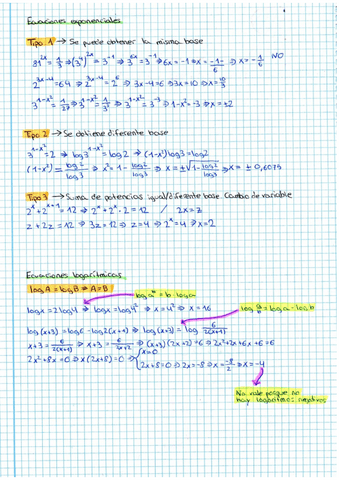 Ecuaciones exponenciales
Tipo 1 → Se puede obtener la misma base
81^2x = 1/3 ⇒ (3^4)^2x = 3^-1 ⇒ 3^6x = 3^-1 ⇒ 6x = -1 ⇒ x = -1/6 ⇒ x = -1/6 NO
2^3x-4 = 64 ⇒ 2^3x-4 = 2^6 ⇒ 3x-4 = 6 ⇒ 3x = 10 ⇒ x = 10/3
3^1-x² = 1/27 ⇒ 3^1-x² = 1/3³ ⇒ 3^1-x² = 3^-3 ⇒ 1-x² = -3 ⇒ x = ±2
Tipo 2 → Se obtiene diferente base
3^1-x² = 2 ⇒ log 3^1-x² = log 2 ⇒ (1-x²) log 3 = log 2
(1-x²) = log 2/log 3 ⇒ x² = 1 - log 2/log 3 ⇒ x = ±√(1 - log 2/log 3) ⇒ x = ± 0,6075
Tipo 3 → Suma de potencias igual/diferente base. Cambio de variable
2^x + 2^x+1 = 12 ⇒ 2^x + 2^x · 2 = 12 / 2x = z
z + 2z = 12 ⇒ 3z = 12 ⇒ z = 4 ⇒ 2^x = 4 ⇒ x = 2
Ecuaciones logarítmicas
log A = log B ⇒ A = B
log a^b = b · log a
log x = 2 log 4 ⇒ log x = log 4² ⇒ x = 4² ⇒ x = 16
log a/b = log a - log b
log (x+3) = log 6 - log 2(x+1) ⇒ log (x+3) = log 6/2(x+1)
x+3 = 6/2(x+1) ⇒ x+3 = 6/2x+2 ⇒ (x+3)(2x+2) = 6 ⇒ 2x² + 2x + 6x + 6 = 6
2x² + 8x = 0 ⇒ x(2x+8) = 0 ⇒ x = 0
2x + 8 = 0 ⇒ 2x = -8 ⇒ x = -8/2 ⇒ x = -4
No vale porque no
hay logaritmos negativos